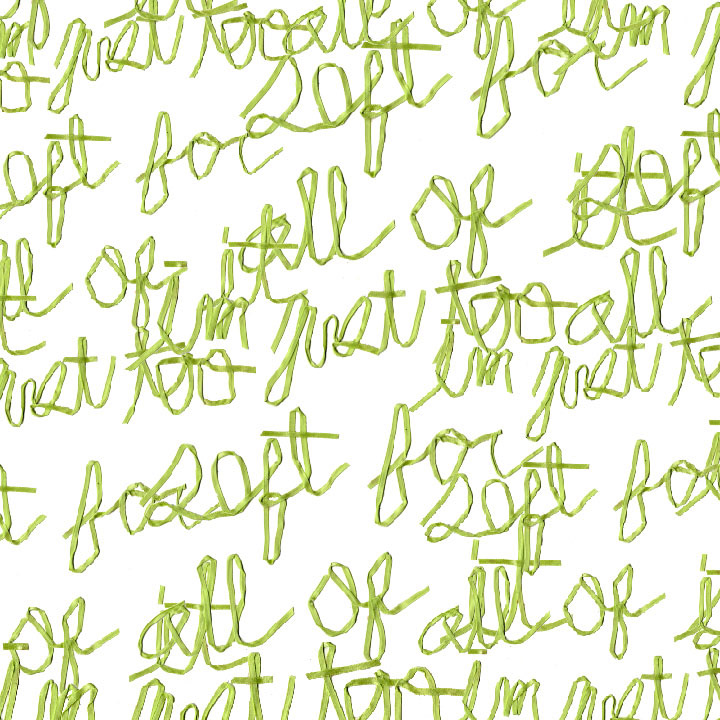 just too all of I'm
soft for
for
all of it soft
of it I'm just too all
just too I'm just
soft for
for soft
all of it all of
of just too I'm just